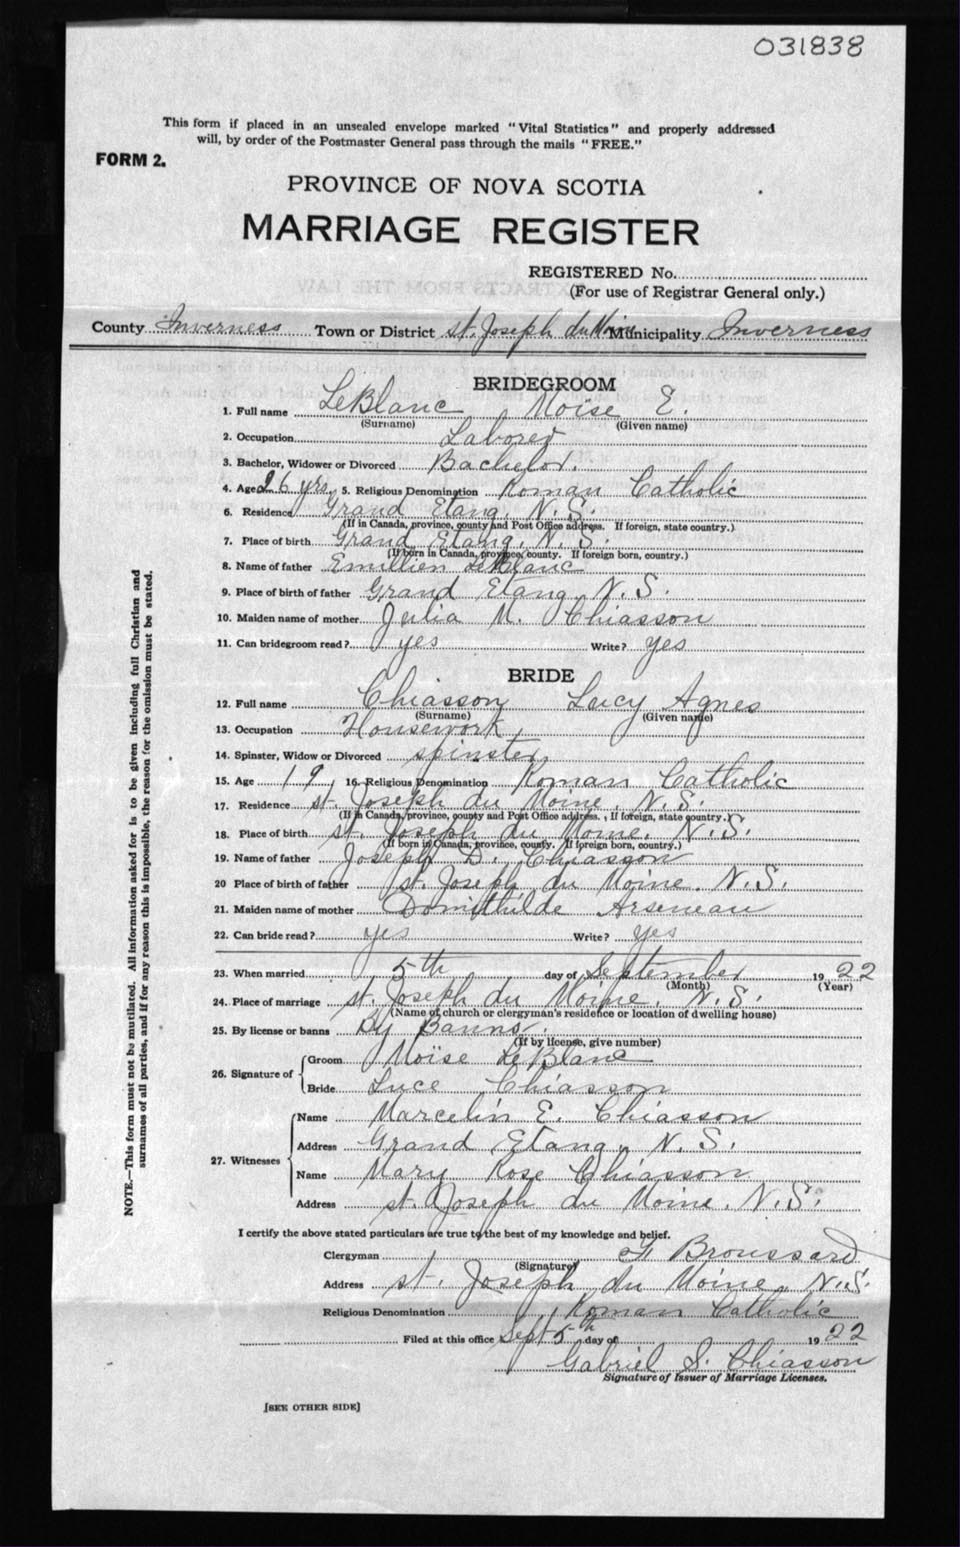 031838
This form if placed in an unsealed envelope marked "Vital Statistics" and properly addressed
will, by order of the Postmaster General pass through the mails "FREE."
FORM 2.
PROVINCE OF NOVA SCOTIA
MARRIAGE REGISTER
REGISTERED No.
(For use of Registrar General only.)
County Inverness Town or District St. Joseph du Moine Municipality Inverness
BRIDEGROOM
1. Full name LeBlanc Moïse E.
(Surname) (Given name)
2. Occupation Laborer
3. Bachelor, Widower or Divorced Bachelor.
4. Age 26 yrs. 5. Religious Denomination Roman Catholic
6. Residence Grand Etang, N.S.
(If in Canada, province, county and Post Office address. If foreign, state country.)
7. Place of birth Grand Etang, N.S.
(If born in Canada, province, county. If foreign born, country.)
8. Name of father Emillien LeBlanc
9. Place of birth of father Grand Etang, N.S.
10. Maiden name of mother Julia M. Chiasson
11. Can bridegroom read? yes Write? yes
BRIDE
12. Full name Chiasson Lucy Agnes
(Surname) (Given name)
13. Occupation Housework
14. Spinster, Widow or Divorced spinster
15. Age 19 16. Religious Denomination Roman Catholic
17. Residence St. Joseph du Moine, N.S.
(If in Canada, province, county and Post Office address. If foreign, state country.)
18. Place of birth St. Joseph du Moine, N.S.
(If born in Canada, province, county. If foreign born, country.)
19. Name of father Joseph D. Chiasson
20 Place of birth of father St. Joseph du Moine, N.S.
21. Maiden name of mother Domithilde Arseneau
22. Can bride read? yes Write? yes
23. When married 5th day of September 1922
(Month) (Year)
24. Place of marriage St. Joseph du Moine, N.S.
(Name of church or clergyman's residence or location of dwelling house)
25. By license or banns By Banns.
(If by license, give number)
26. Signature of
Groom Moïse LeBlanc
Bride Luce Chiasson
27. Witnesses
Name Marcelin E. Chiasson
Address Grand Etang, N.S.
Name Mary Rose Chiasson
Address St. Joseph du Moine, N.S.
I certify the above stated particulars are true to the best of my knowledge and belief.
Clergyman Broussard
(Signature)
Address St. Joseph du Moine, N.S.
Religious Denomination Roman Catholic
Filed at this office Sept 5th day of 1922
Gabriel S. Chiasson
Signature of Issuer of Marriage Licenses.
[SEE OTHER SIDE]
NOTE.—This form must not be mutilated. All information asked for is to be given including full Christian and
surnames of all parties, and if for any reason this is impossible, the reason for the omission must be stated.